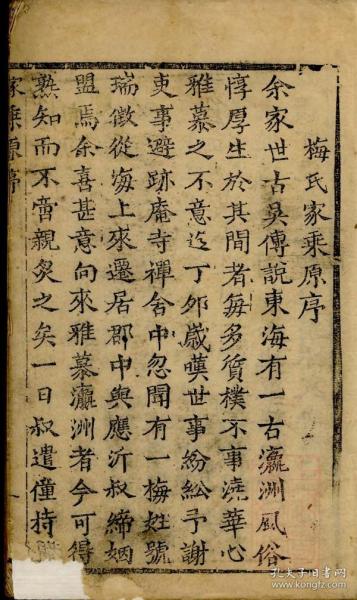 梅氏家乘原序
余家世古吳傳說東海有一古瀛洲風俗
惇厚生於其間者每多質樸不事澆華心
雅慕之不意迄丁卯歲嘆世事紛紜予謝
吏事避跡庵寺禪舍中忽聞有一梅姓號
瑞徵從海上來遷居郡中與應沂叔締姻
盟焉余喜甚意向來雅慕瀛洲者今可得
熟知而不啻親炙之矣一日叔遣僮持
家乘原序
一
孔夫子旧书网